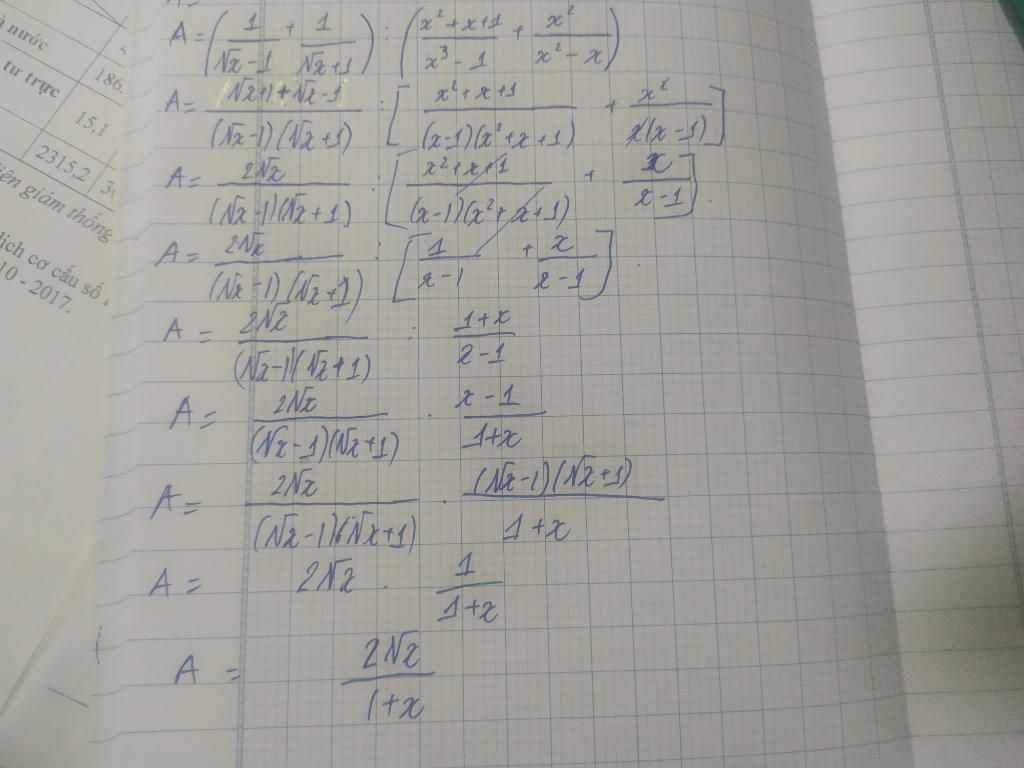 à nước
tư trực
186.
15,1
2315,2
iên giám thống
dịch cơ cấu số
10 - 2017.
A = (1/(√x-1) + 1/(√x+1)) : ((x²+x+1)/(x³-1) + x²/(x²-x))
A = (√x+1+√x-1)/((√x-1)(√x+1)) : [(x²+x+1)/((x-1)(x²+x+1)) + x²/(x(x-1))]
A = 2√x/((√x-1)(√x+1)) : [(x²+x+1)/((x-1)(x²+x+1)) + x/(x-1)].
A = 2√x/((√x-1)(√x+1)) : [1/(x-1) + x/(x-1)].
A = 2√x/((√x-1)(√x+1)) : (1+x)/(x-1)
A = 2√x/((√x-1)(√x+1)) . (x-1)/(1+x)
A = 2√x/((√x-1)(√x+1)) . ((√x-1)(√x+1))/(1+x)
A = 2√x . 1/(1+x)
A = 2√x/(1+x)